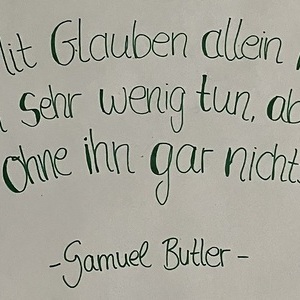 Mit Glauben allein
sehr wenig tun, ab
ohne ihn gar nichts
- Samuel Butler -